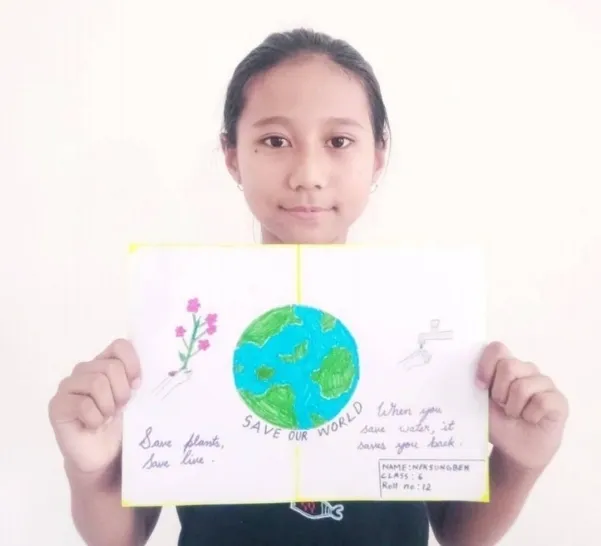 Save plants,
Save live.
SAVE OUR WORLD
When you
save water, it
saves you back.
CLASS: 6
Roll no: 12